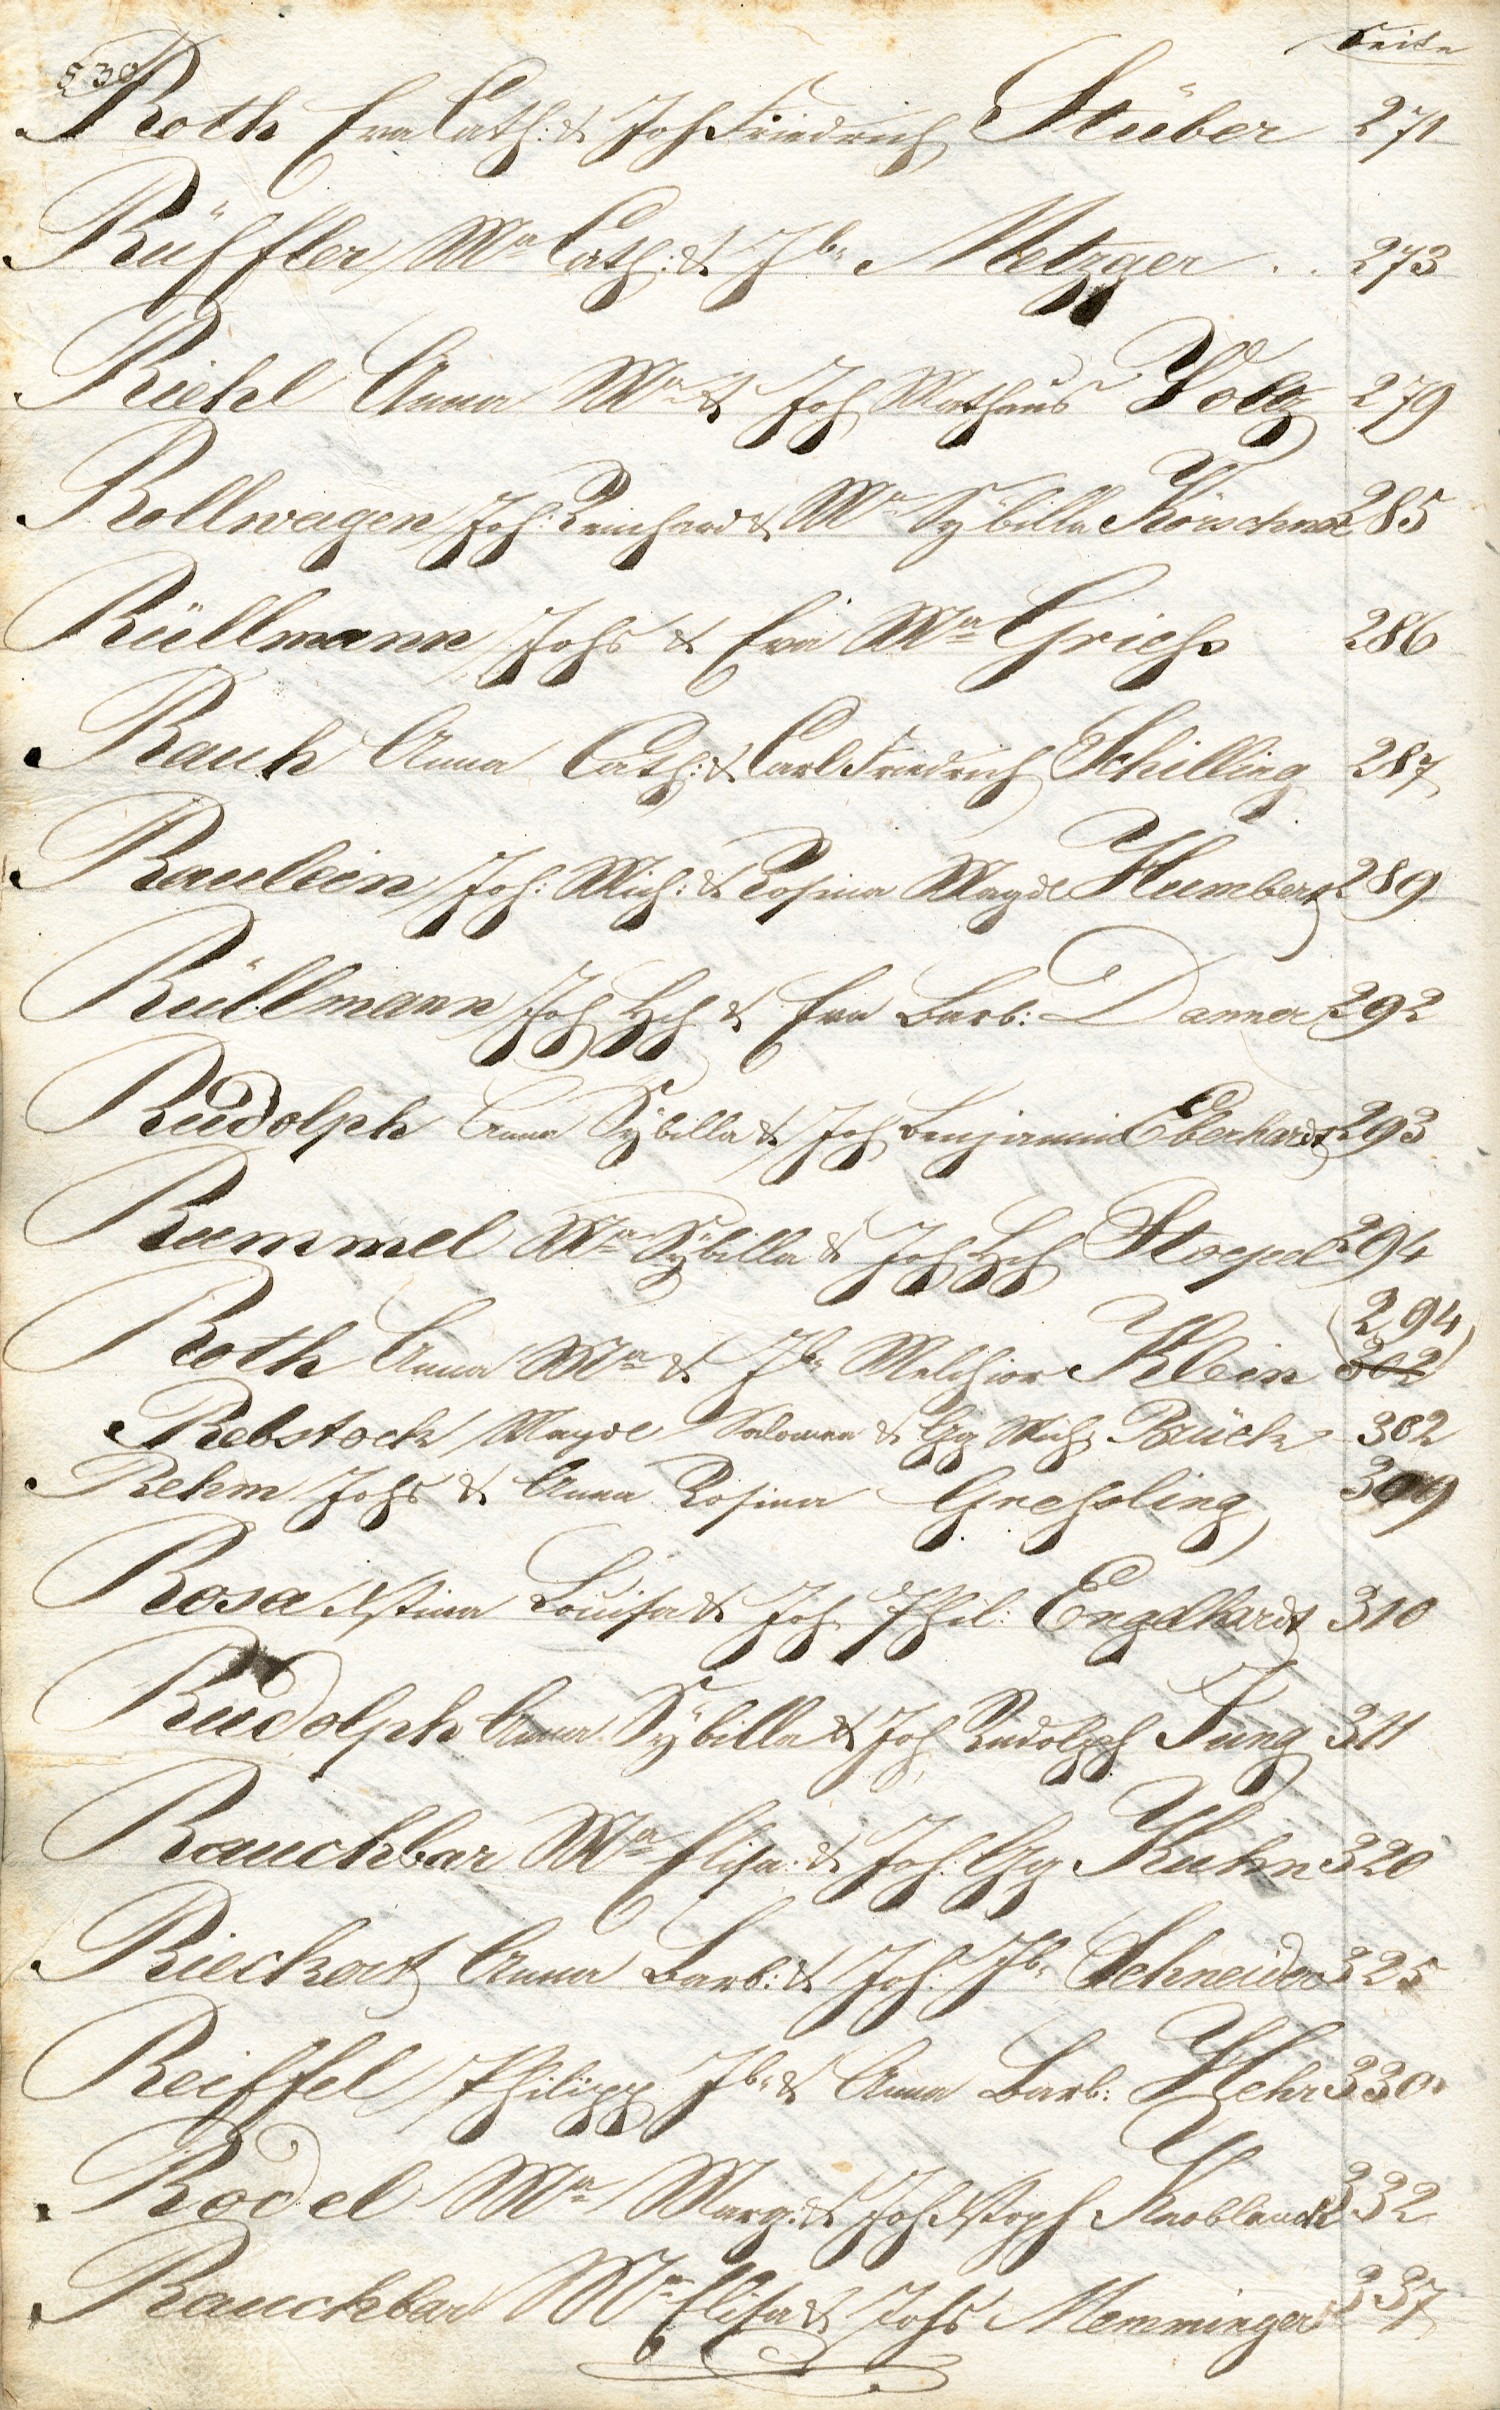 Seite
530
Roth Eva Cath: & Joh Friedrich Stüber 271
Rüffler Ma Cath: & Jb. Metzger . . 273
Riehl Anna Ma & Joh Mathaus Volz 279
Rollwagen Joh: Reinhard & Ma Sÿbilla Körschner 285
Rüllmann Johs & Eva Ma Griehs 286
Rauh Anna Cath: & Carl Friedrich Schilling 287
Raulein Joh: Mich: & Rosina Magdl Humbert 289
Rüllmann Joh Hch & Eva Barb: Danner 292
Rudolph Anna Sÿbilla & Joh Benjamin Eberhardt 293
Rummel Ma Sÿbilla & Joh Hch Stoepel 294
(294)
Roth Anna Ma & Jb. Melchior Klein 302
Rebstock Magdl Salomea & Gg Mich Rück 302
Rehm Johs & Anna Rosina Grehsling 309
Rosa Xstina Louisa & Joh Phil: Engelhardt 310
Rudolph Anna Sÿbilla & Joh Rudolph Jung 311
Rauchbar Ma Elisa: & Joh: Gg Kuhn 320
Rieckert Anna Barb: & Joh: Jb. Schneider 325
Reiffel Philipp Jb. & Anna Barb: Hehr 330
Rodel Ma Marg: & Joh Xstoph Knoblauch 332
Rauchbar Ma Elisa & Johs Memminger 337